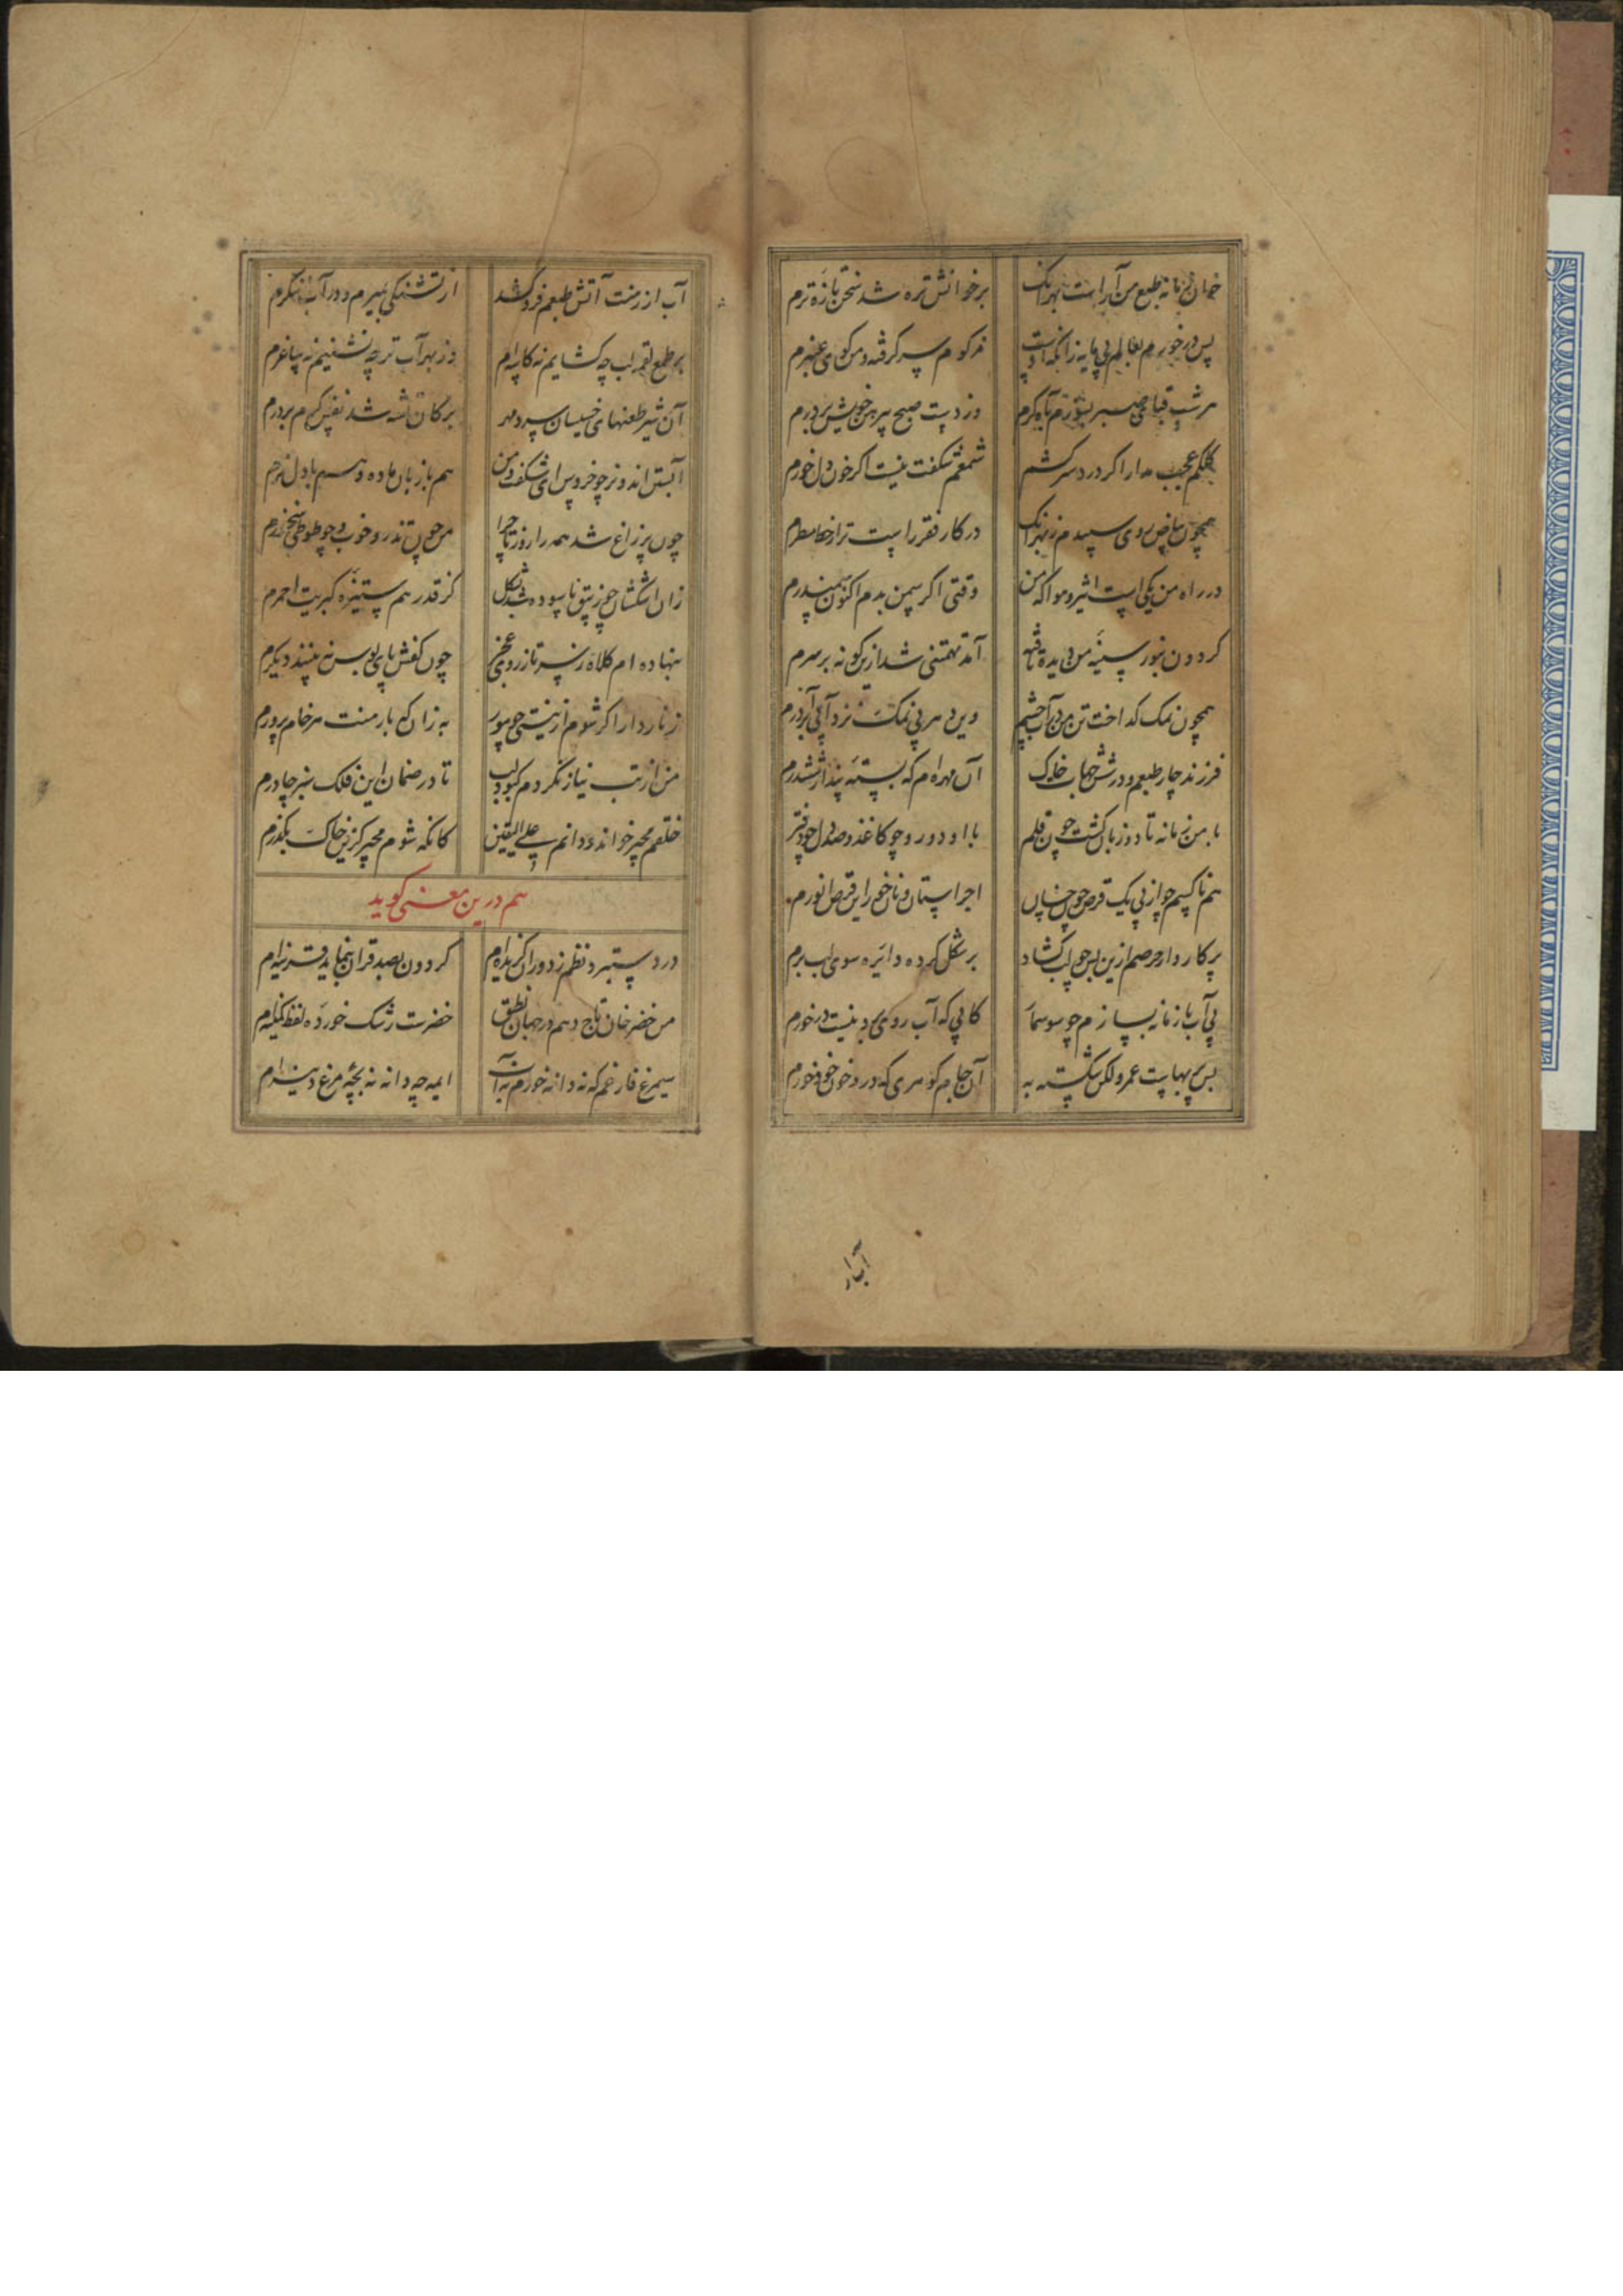 خوان زمانه طبع من آراست بهر آنک
بر خوانش تره شد سخن تازه ترم
پس در خورم بعالم بی مایه زانکه اوست
مزکوم سر گرفته و من گوی عنبرم
هر شب قبای صبر بسوزم بآه گرم
وز دست صبح پیرهن خویش بردرم
کلکم عجب مدار اگر درد سر کشم
شمعم شگفت نیست اگر خون دل خورم
همچون بیاض روی سپیدم ز بهر آنک
در کار فقر راست تر از خط مسطرم
در راه من یکی است اثیر و هوا که من
وقتی اگر سمن بدم اکنون سمندرم
گردون بنور سینه من دیده تافته
آمد تهمتنی شد ازین گونه بر سرم
همچون نمک گداخت تن من در آب چشم
وین دهر بی نمک نزد آبی بر آذرم
فرزند چار طبعم و در شش جهات خاک
آن مهره ام که بسته پندار ششدرم
با من زمانه تا دو زبان گشت چون قلم
با او دو رو چو کاغذ و صد دل چو دفترم
هم ناکسم چو از پی یک قرص چون خسان
اجرا ستان و نان خور این قرص انورم
پرگار وار حرصم ازین پس چو لب گشاد
بر شکل کرده دایره سوی لب برم
بی آب با زمانه بسازم چو سوسمار
کابی که آب روی برد نیست در خورم
بس بی بهاست عمر ولکن شکسته به
آن جام گوهری که درو خون خود خورم
آب ار
آب ار ز منت آتش طبعم فرو کشد
از تشنگی بمیرم و در آب ننگرم
بر طمع لقمه لب چه گشایم نه کاسه ام
وز بهر آب تر چه نشینم نه ساغرم
آن شیر طعنهای خسیسان سرد مهر
بر کان شه شد نفس گرم بردرم
آبستن اند و نر چو خروس ای شگفت و من
هم با زبان ماده و هم با دل نرم
چون پر زاغ شد همه را روزنا چرا
من چون تذرو خوب و چو طوطی سخنورم
زان اشکشان چو زیبق ناسوده شد بشکل
کز قدر هم ستیزه کبریت احمرم
بنهاده ام کلاه ز سر تا ز روی عجز
چون کفش پای بوس نه بیند دیگرم
زنار دار اگر شوم از نیستی چو مور
به زان که بار منت هر خام پرورم
من از تب نیاز نگردم کبود لب
تا در ضمان این فلک سبز چادرم
خلقم مجیر خواند و دانم علی الیقین
کانگه شوم مجیر کزین خاک بگذرم
هم درین معنی گوید
در دستبرد نظم ز دوران گزیده ام
گردون بصد قران ننماید قرینه ام
من خضر خان تاج دهم در جهان نطق
خضرست رشک خورده لفظ
سیمرغ فارغم که نه دانه خورم نه آب
ایمه چه دانه نه بچه مرغ